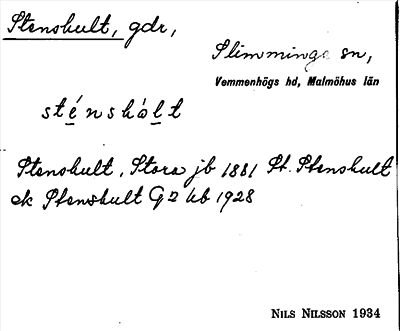 Stenshult, gdr,
Slimminge sn,
Vemmenhögs hd, Malmöhus län
sténshúlt
Stenshult, Stora jb 1881 St. Stenshult
ek Stenshult G2 kb 1928
NILS NILSSON 1934